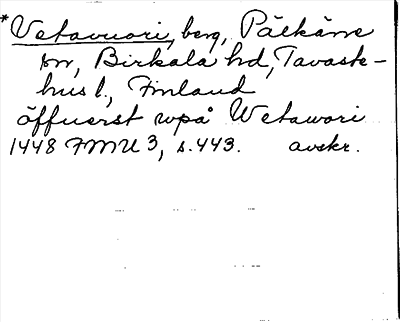 *Vetavuori, berg, Pälkäne
sn, Birkala hd, Tavaste-
hus l., Finland
öffuerst wpå Wetawori
1448 FMU 3, s.443. avskr.